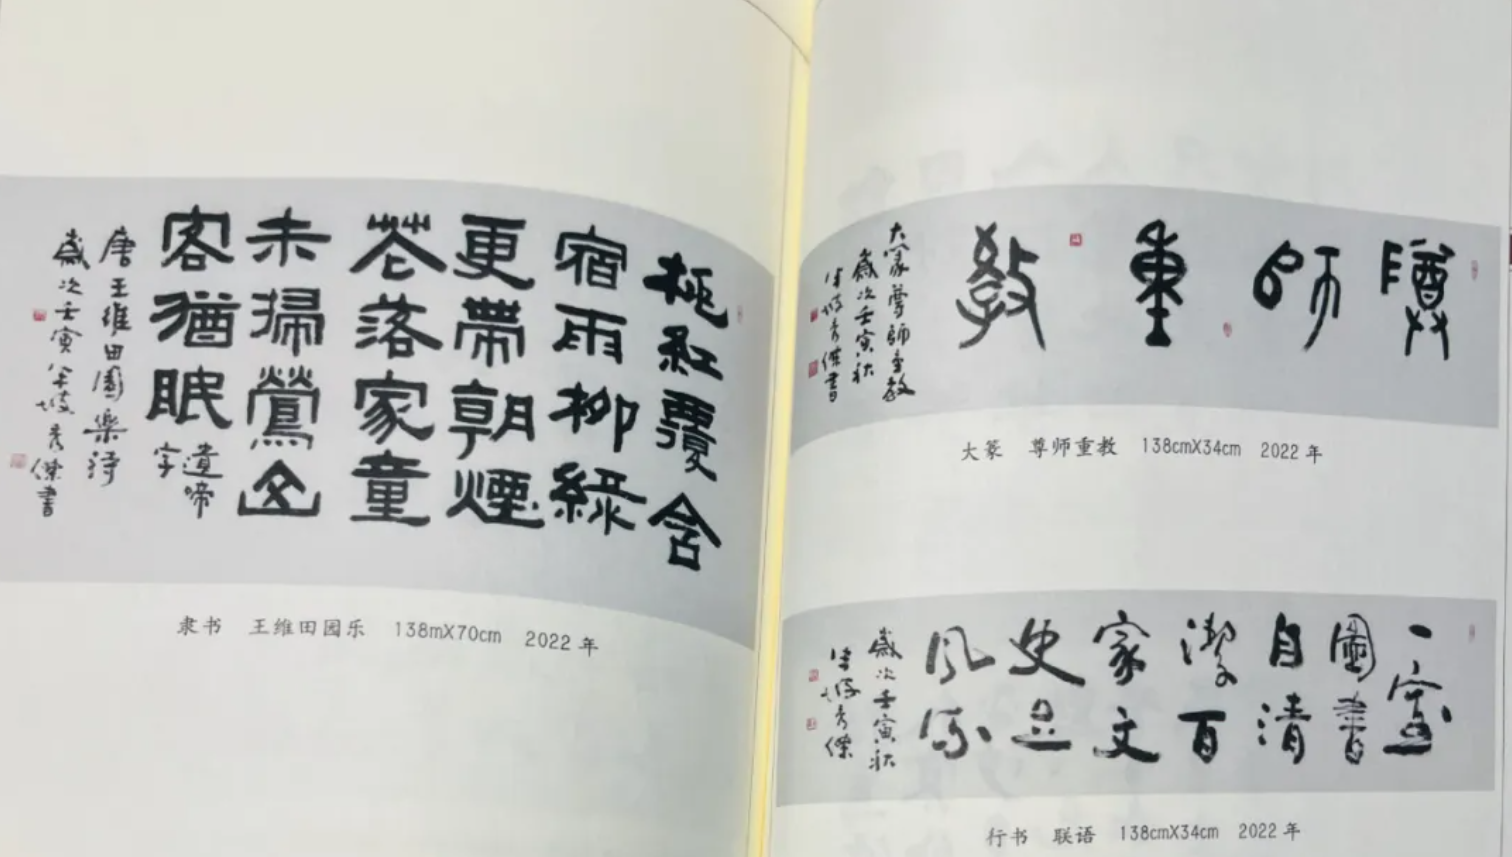 桃紅覆含
宿雨柳綠
更帶朝煙
花落家童
未掃鶯山
客猶眠
遺啼
字
唐王維田園樂詩
歲次壬寅半坡秀傑書
隶书 王维田园乐 138mX70cm 2022年
尊師重教
大篆尊師重教
歲次壬寅秋
半坡秀傑書
大篆 尊师重教 138cmX34cm 2022年
一室
圖書
自清
潔百
家文
史足
風流
歲次壬寅秋
半坡秀傑
行书 联语 138cmX34cm 2022年